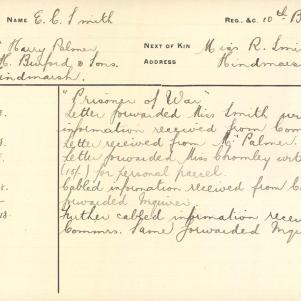 NAME E. C. Smith REG. &C. 10th B
Harry Palmer NEXT OF KIN Miss R. Smi
H. Binford & Sons. ADDRESS Hindmars
indmarsh.
"Prisoner of War"
Letter forwarded Miss Smith
information received from Com
Letter received from Mr Palmer.
Letter forwarded Miss Cromley
for personal parcel.
Cabled information received from C
forwarded Inquirer.
18. Further cabled information recei
Commrs. Same forwarded Inqui